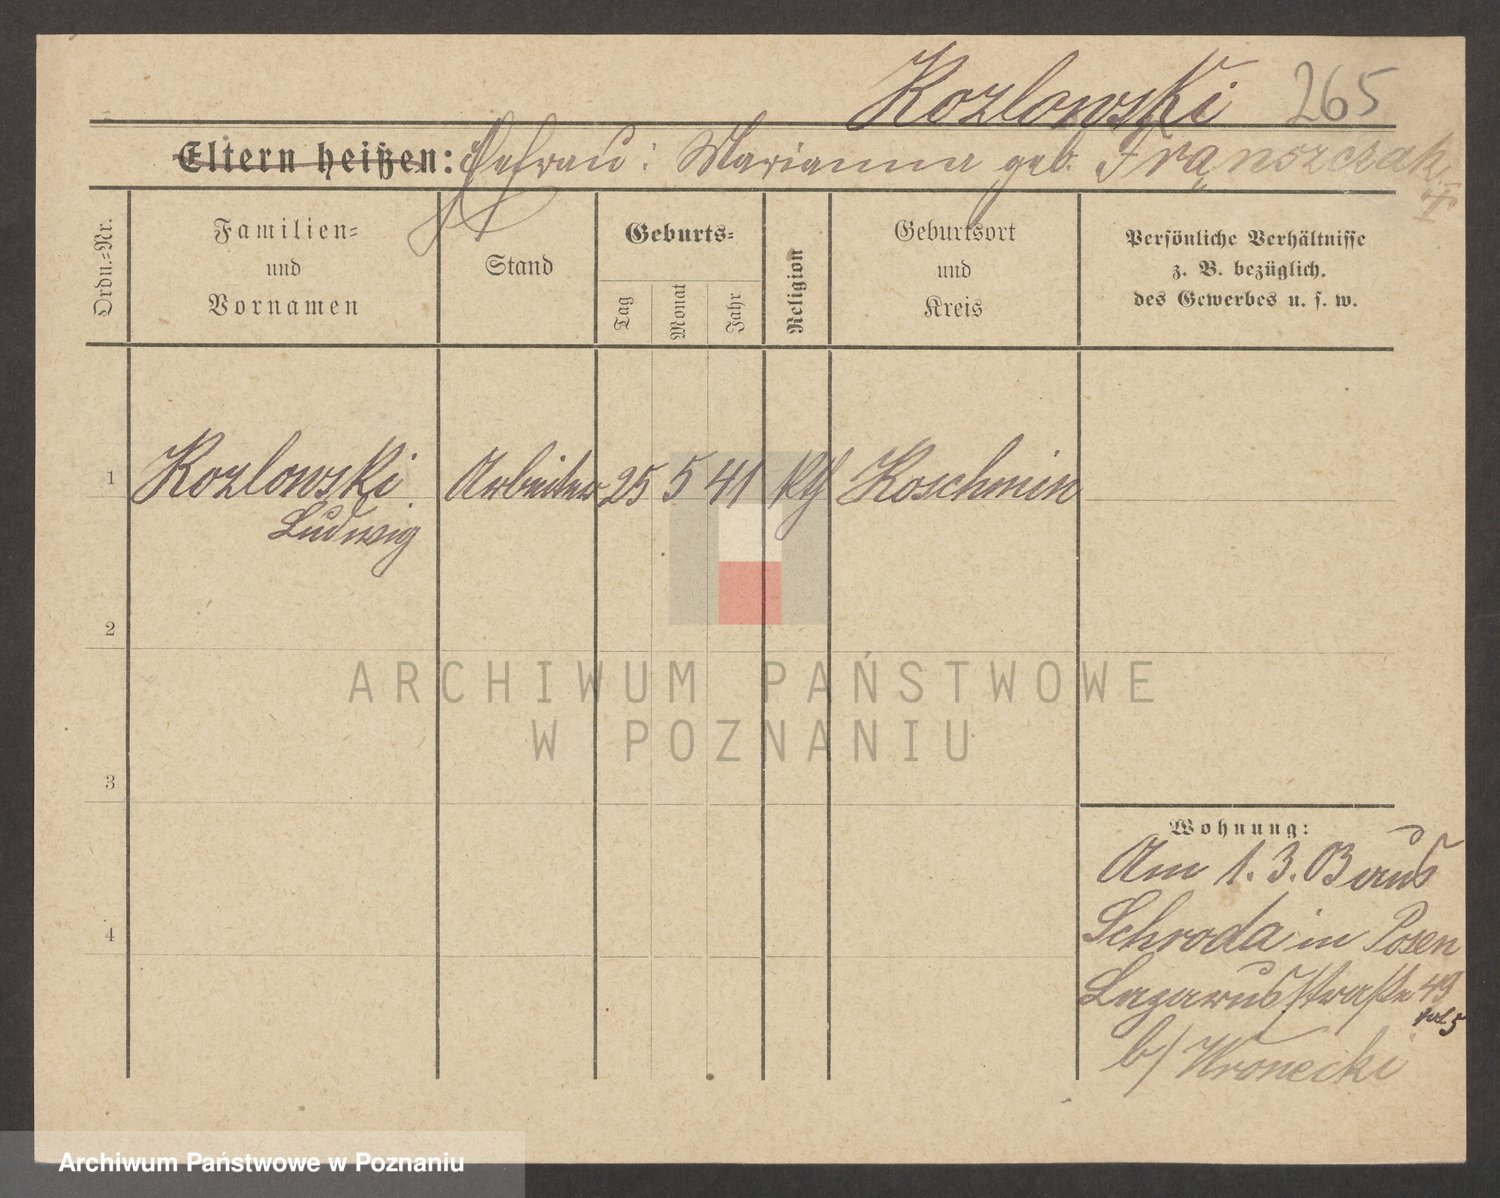 Kozlowski 265
Eltern heißen: Ehefrau: Marianna geb. Franszczak
Ordn.-Nr.
Familien-
und
Vornamen
Stand
Geburts-
Tag
Monat
Jahr
Religion
Geburtsort
und
Kreis
Persönliche Verhältnisse
z. B. bezüglich.
des Gewerbes u. s. w.
1 Kozlowski Arbeiter 25 5 41 kth Koschmin
Ludwig
2
3
4
Wohnung:
Am 1.3.03 aus
Schroda in Posen
Lazarusstraße 49
b/ Wronecki
ARCHIWUM PAŃSTWOWE
W POZNANIU
Archiwum Państwowe w Poznaniu